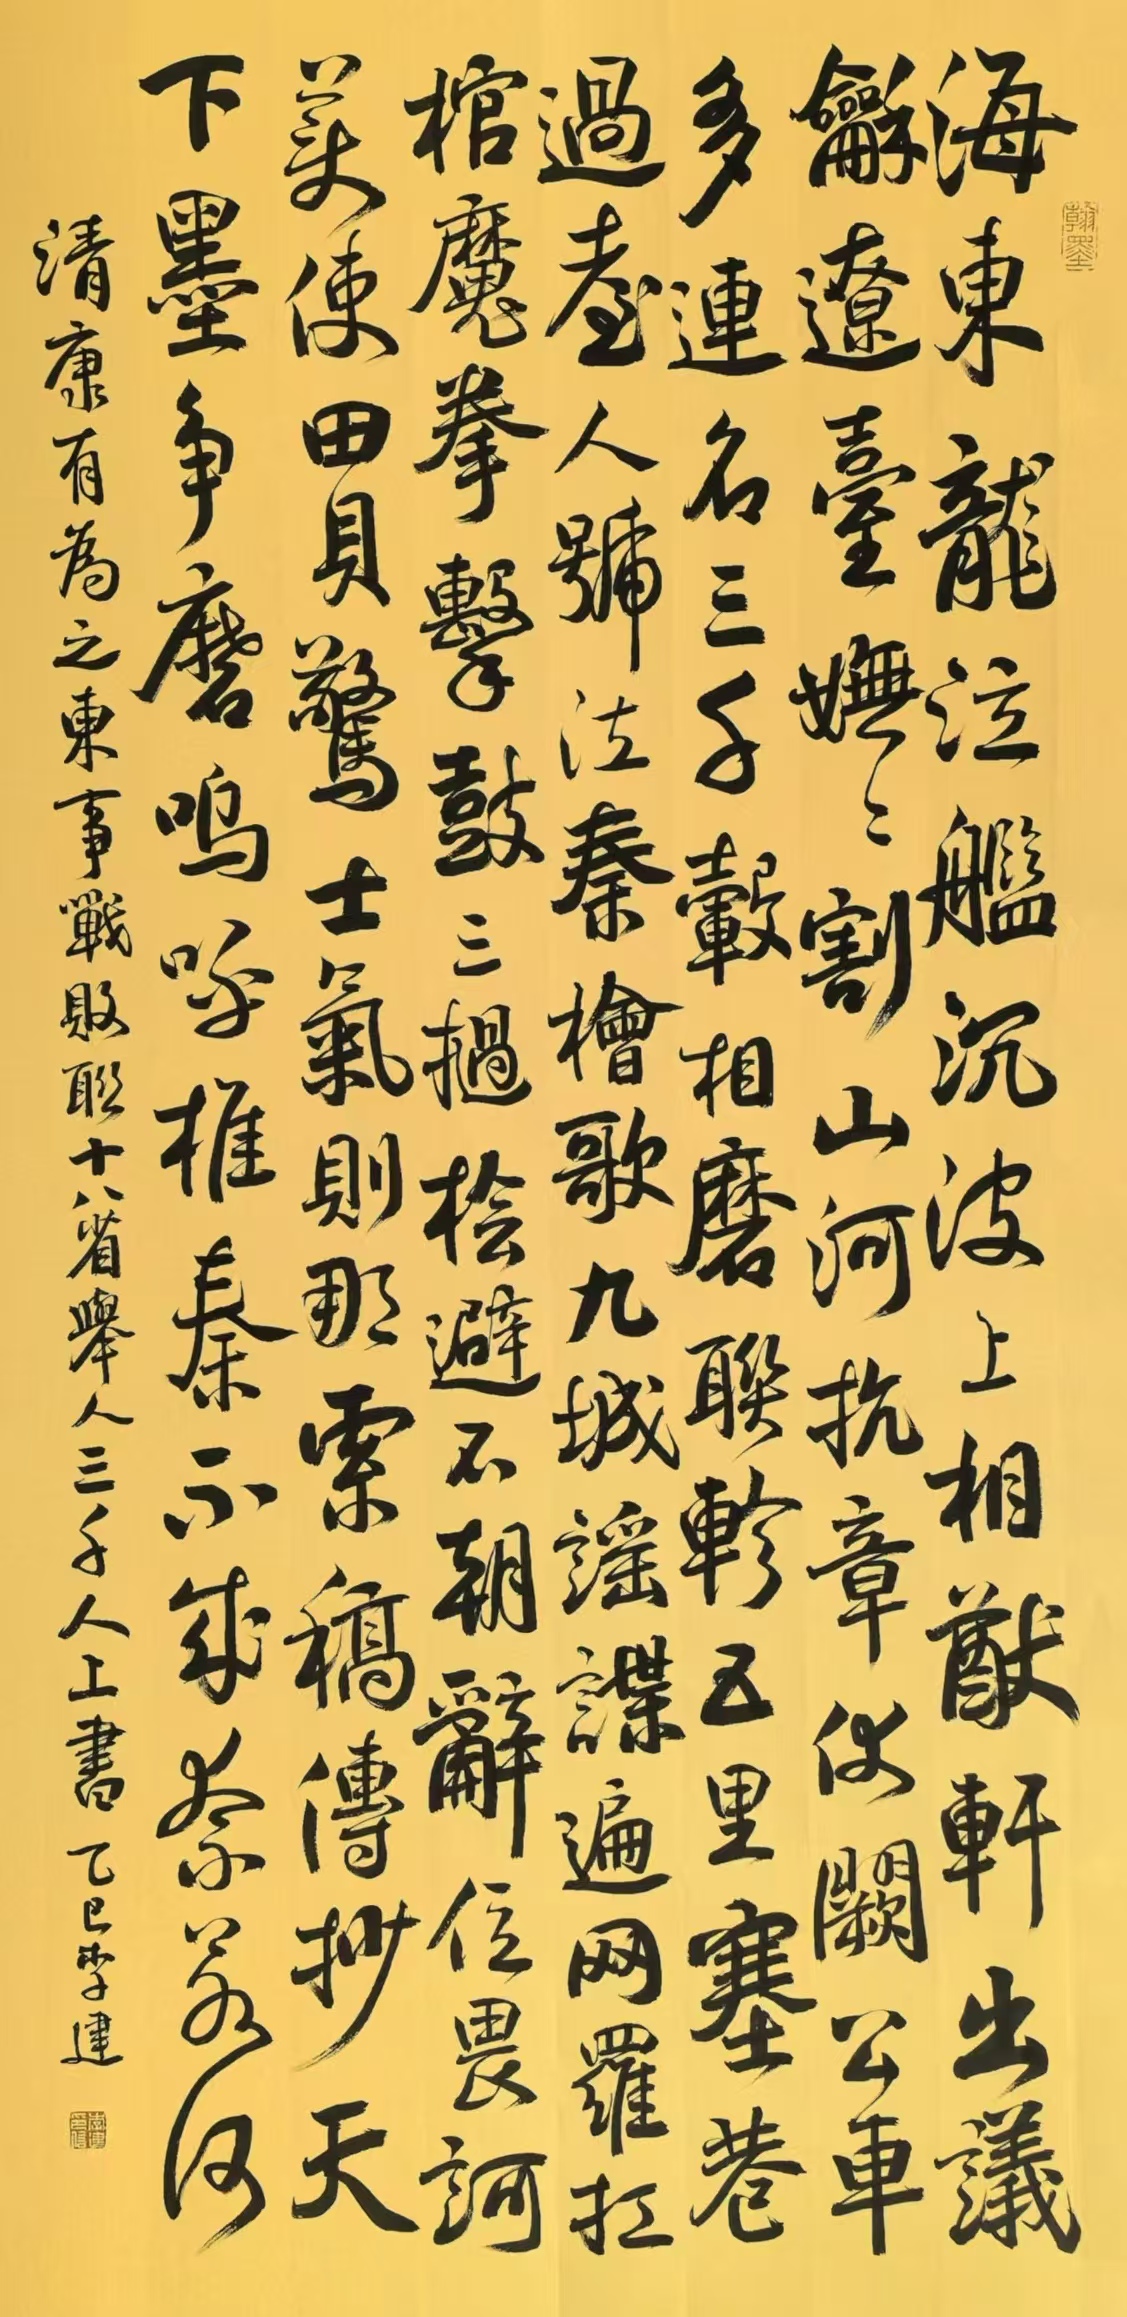 翰墨
海東龍泣艦沉波上相猷軒出議
龢遼臺嫵〻割山河抗章伏闕公車
多連名三千轂相磨聯軫五里塞巷
過臺人號泣秦檜歌九城謡諜遍网羅扛
棺魔拳擊鼓三撾桧避不朝辭位畏訶
美使田貝驚士氣則那索稿傳抄天
下墨争磨嗚呼椎秦不成奈若何
清康有為之東事戰敗聯十八省舉人三千人上書 乙巳李建